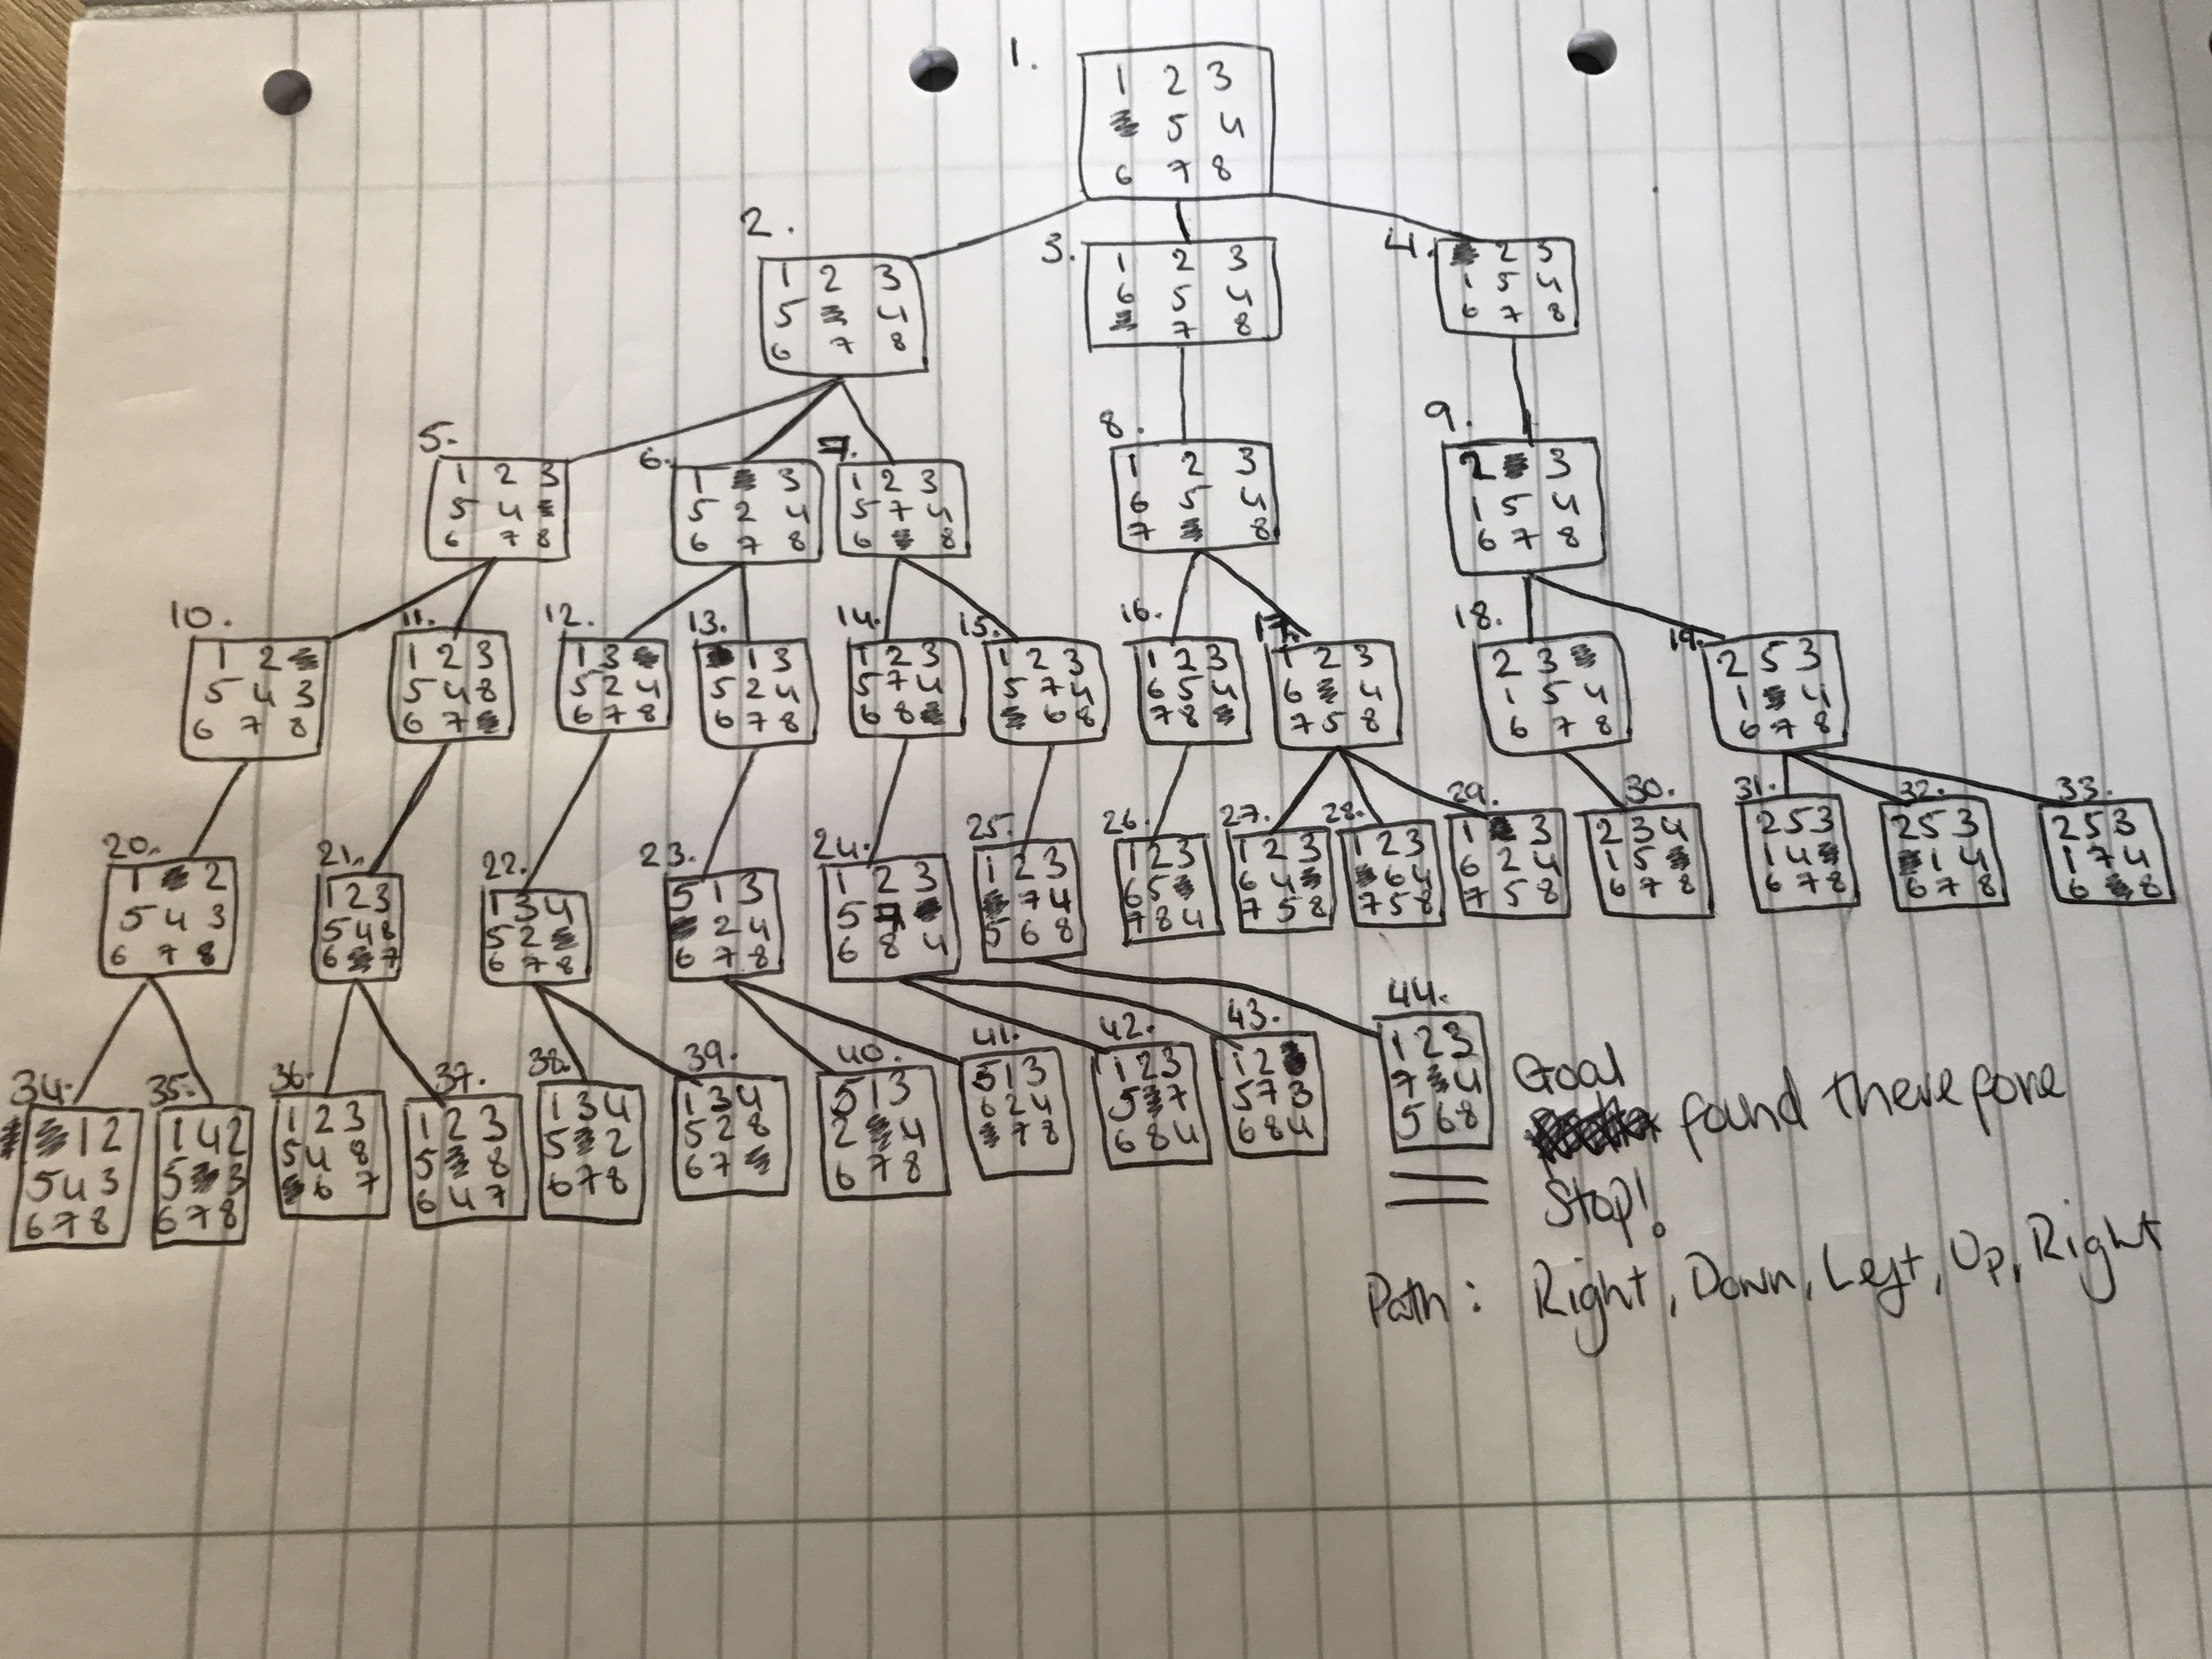 1.
1 2 3
5 4
6 7 8
2.
1 2 3
5 4
6 7 8
3.
1 2 3
6 5 4
7 8
4.
2 3
1 5 4
6 7 8
5.
1 2 3
5 4
6 7 8
6.
1 3
5 2 4
6 7 8
7.
1 2 3
5 7 4
6 8
8.
1 2 3
6 5 4
7 8
9.
2 3
1 5 4
6 7 8
10.
1 2
5 4 3
6 7 8
11.
1 2 3
5 4 8
6 7
12.
1 3
5 2 4
6 7 8
13.
1 3
5 2 4
6 7 8
14.
1 2 3
5 7 4
6 8
15.
1 2 3
5 7 4
6 8
16.
1 2 3
6 5 4
7 8
17.
1 2 3
6 4
7 5 8
18.
2 3
1 5 4
6 7 8
19.
2 5 3
1 4
6 7 8
20.
1 2
5 4 3
6 7 8
21.
1 2 3
5 4 8
6 7
22.
1 3 4
5 2
6 7 8
23.
5 1 3
2 4
6 7 8
24.
1 2 3
5 7
6 8 4
25.
1 2 3
7 4
5 6 8
26.
1 2 3
6 5
7 8 4
27.
1 2 3
6 4
7 5 8
28.
1 2 3
6 4
7 5 8
29.
1 3
6 2 4
7 5 8
30.
2 3 4
1 5
6 7 8
31.
2 5 3
1 4
6 7 8
32.
2 5 3
1 4
6 7 8
33.
2 5 3
1 7 4
6 8
34.
1 2
5 4 3
6 7 8
35.
1 4 2
5 3
6 7 8
36.
1 2 3
5 4 8
6 7
37.
1 2 3
5 8
6 4 7
38.
1 3 4
5 2
6 7 8
39.
1 3 4
5 2 8
6 7
40.
5 1 3
2 4
6 7 8
41.
5 1 3
6 2 4
7 8
42.
1 2 3
5 7
6 8 4
43.
1 2
5 7 3
6 8 4
44.
1 2 3
7 4
5 6 8
Goal found therefore
Stop!
Path: Right, Down, Left, Up, Right